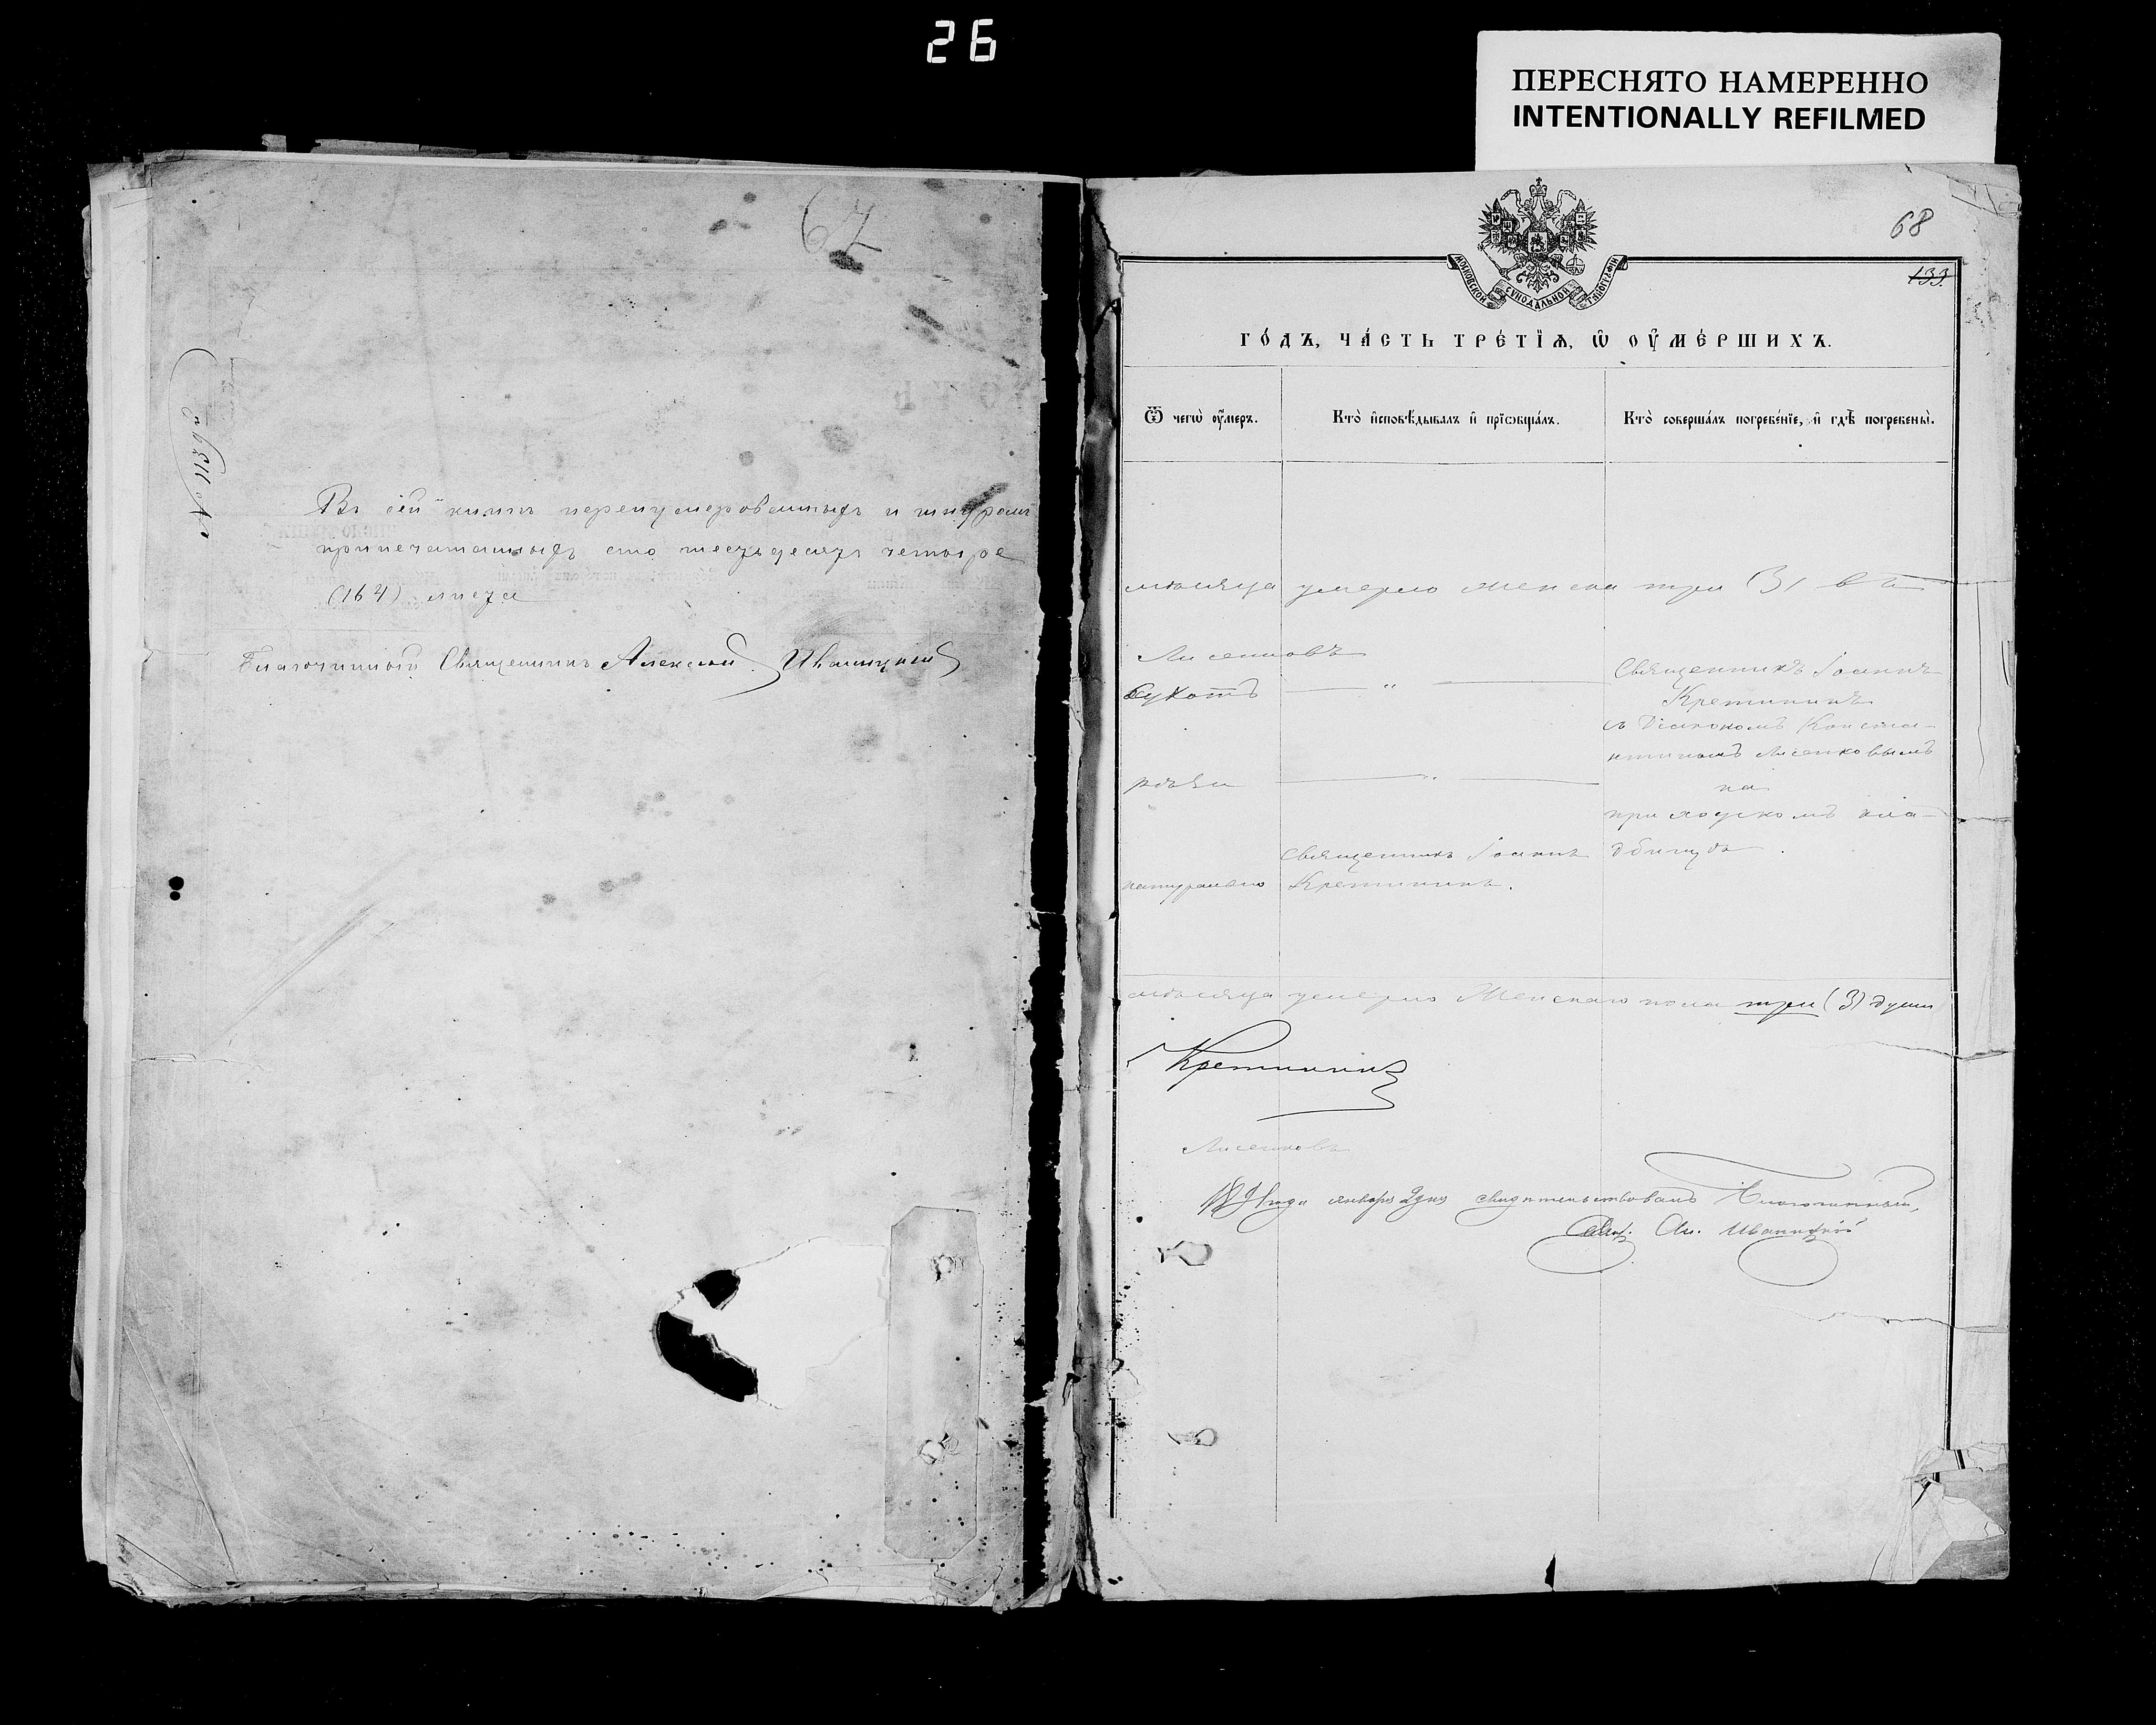 26
ПЕРЕСНЯТО НАМЕРЕННО
INTENTIONALLY REFILMED
67
Въ сей книгѣ перенумерованныхъ и шнуромъ
припечатанныхъ сто шестьдесятъ четыре
(164) листа
Благочинный Священникъ Алексѣй Иваницкій
68
133
МОСКОВСКОЙ СѴНОДАЛЬНОЙ ТѴПОГРАФІИ
ГО́ДЪ, ЧА́СТЬ ТРЕ́ТЇѦ, Ѡ҆ ОУ҆МЕ́РШИХЪ.
Ѿ чегѡ̀ оу҆́меръ.
Кто̀ и҆сповѣ́дывалъ и҆ прїѡбща́лъ.
Кто̀ соверша́лъ погребе́нїе, и҆ гдѣ̀ погребены̀.
мѣсяца умерло женска три (3)
Лисенковъ
сухотъ
Священникъ Іоаннъ
Кретининъ
съ Діакономъ Конста-
нтиномъ Лисенковымъ
на
приходскомъ кла-
дбищѣ.
родъви
Священникъ Іоаннъ
Кретининъ.
натурально
мѣсяца умерло Женскаго пола три (3) души
Кретининъ
Лисенковъ
года января 2 дня свидѣтельствовалъ Благочинный,
Свящ. Ал. Иваницкій